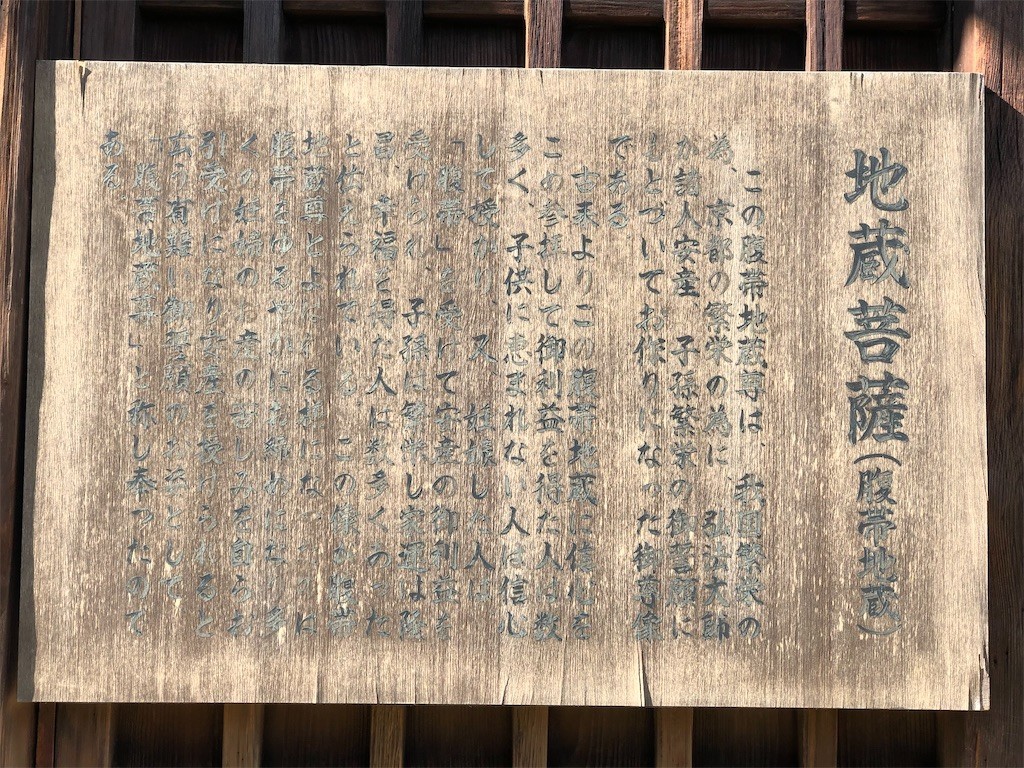 地蔵菩薩(腹帯地蔵)
この腹帯地蔵尊は、我国繁栄の
為、京都の繁栄の為に、弘法大師
が諸人安産、子孫繁栄の御誓願に
もとづいてお作りになった御尊像
である
古来よりこの腹帯地蔵に信心を
こめ参拝して御利益を得た人は数
多く、子供に恵まれない人は信心
して授かり、又、妊娠した人は
「腹帯」を受けて安産の御利益を
受けられ、子孫は繁栄し家運は隆
昌、幸福を得た人は数多くのった
と伝えられている。この像が腹帯
地蔵尊とよばれる様になったのは
腹帯をゆるやかにお締めになり多
くの妊婦のお産の苦しみを自らお
引受けになり安産を受けられると
云う有難い御誓願のお姿として
「腹帯地蔵尊」と称し奉ったので
ある